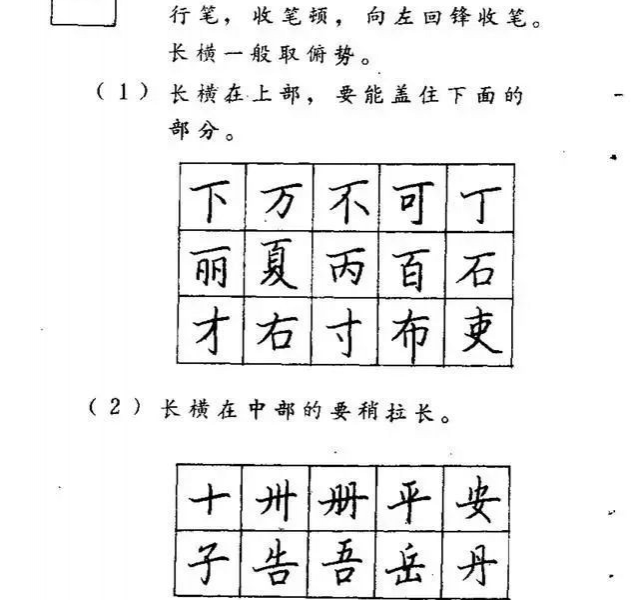 行笔，收笔顿，向左回锋收笔。
长横一般取俯势。
（1）长横在上部，要能盖住下面的
部分。
下万不可丁
丽夏丙百石
才右寸布吏
（2）长横在中部的要稍拉长。
十卅册平安
子告吾岳丹